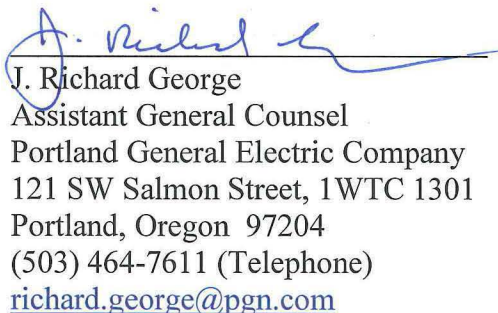 J. Richard George
Assistant General Counsel
Portland General Electric Company
121 SW Salmon Street, 1WTC 1301
Portland, Oregon  97204
(503) 464-7611 (Telephone)
richard.george@pgn.com